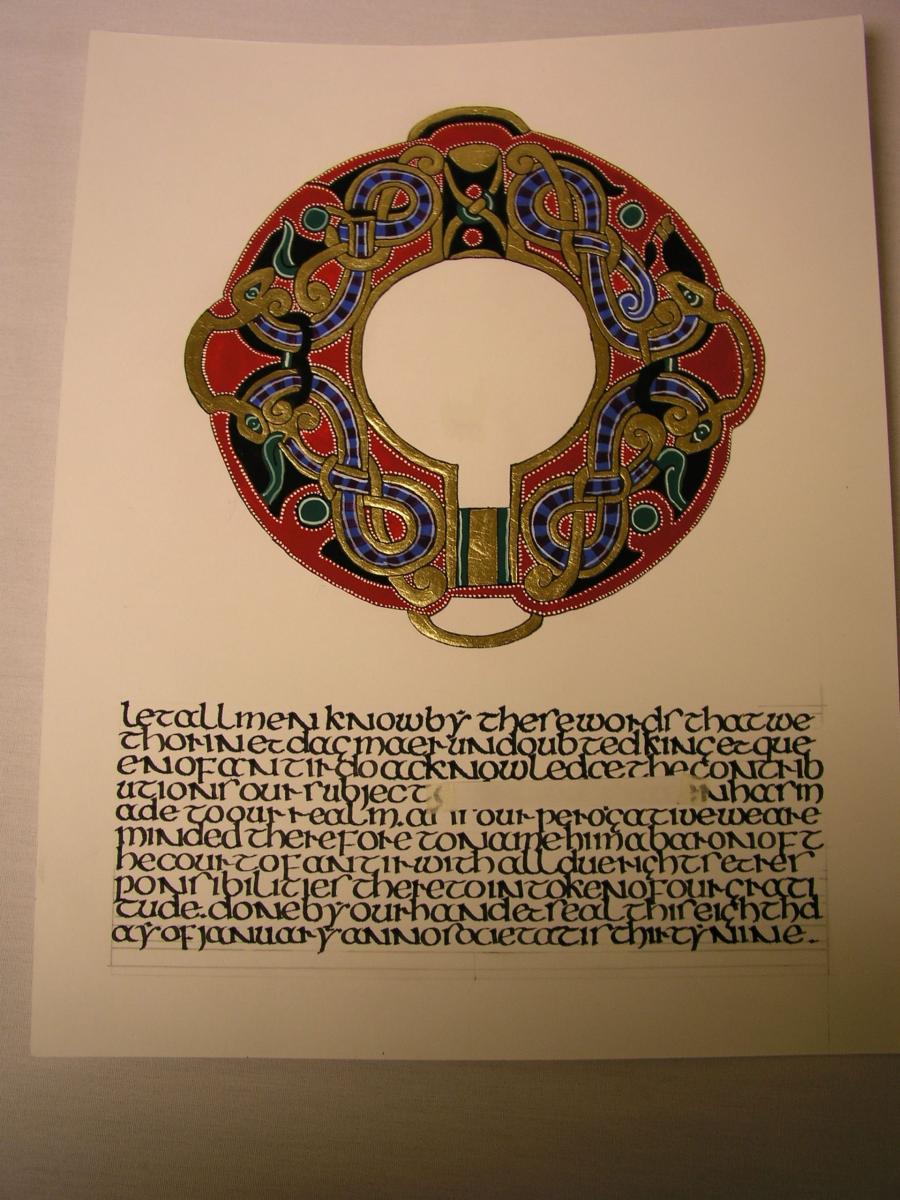 let all men know by these words that we
thorin et dagmaer undoubted king et que
en of an tir do acknowledge the contrib
utions our subject n has m
ade to our realm. as our perogative we are
minded therefore to name him a baron of t
he court of an tir with all due rights et res
ponsibilities thereto in token of our grati
tude. done by our hand et seal this eighth d
ay of january anno societatis thirty nine.